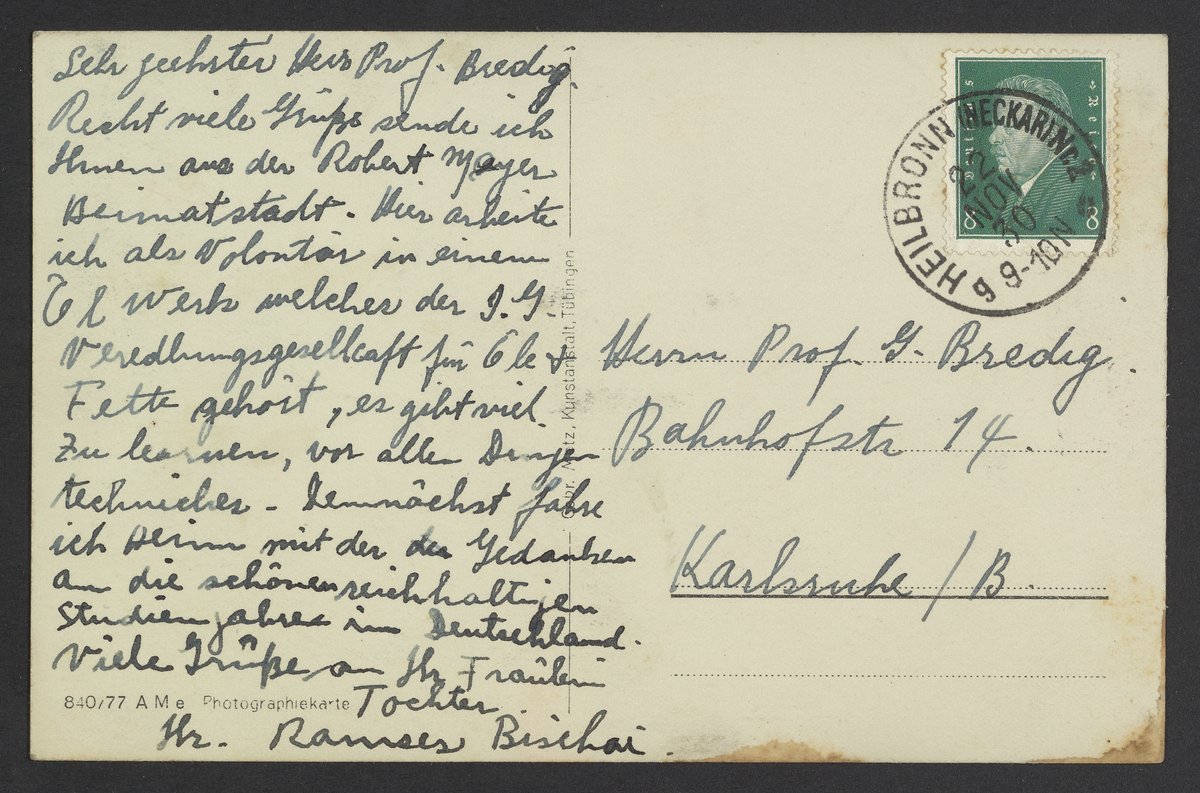 Sehr geehrter Herr Prof. Bredig.
Recht viele Grüße sende ich
Ihnen aus der Robert Mayer
Heimatstadt. Hier arbeite
ich als Volontär in einem
Öl Werk welches der I. G.
Veredlungsgesellcaft für Öle &
Fette gehört, es gibt viel
zu lernen, vor allen Dingen
techniches - Demnächst fahre
ich Heim mit der den Gedanken
an die schönen reichhaltigen
Studienjahre im Deutschland.
Viele Grüße an Ihr Fräulein
Tochter
Ihr. Ramses Bischai.
840/77 A M e Photographiekarte
Gebr. Metz, Kunstanstalt, Tübingen
HEILBRONN (NECKAR)
22
NOV
30
9-10N
8 8
Herrn Prof. G. Bredig.
Bahnhofstr 14.
Karlsruhe / B.